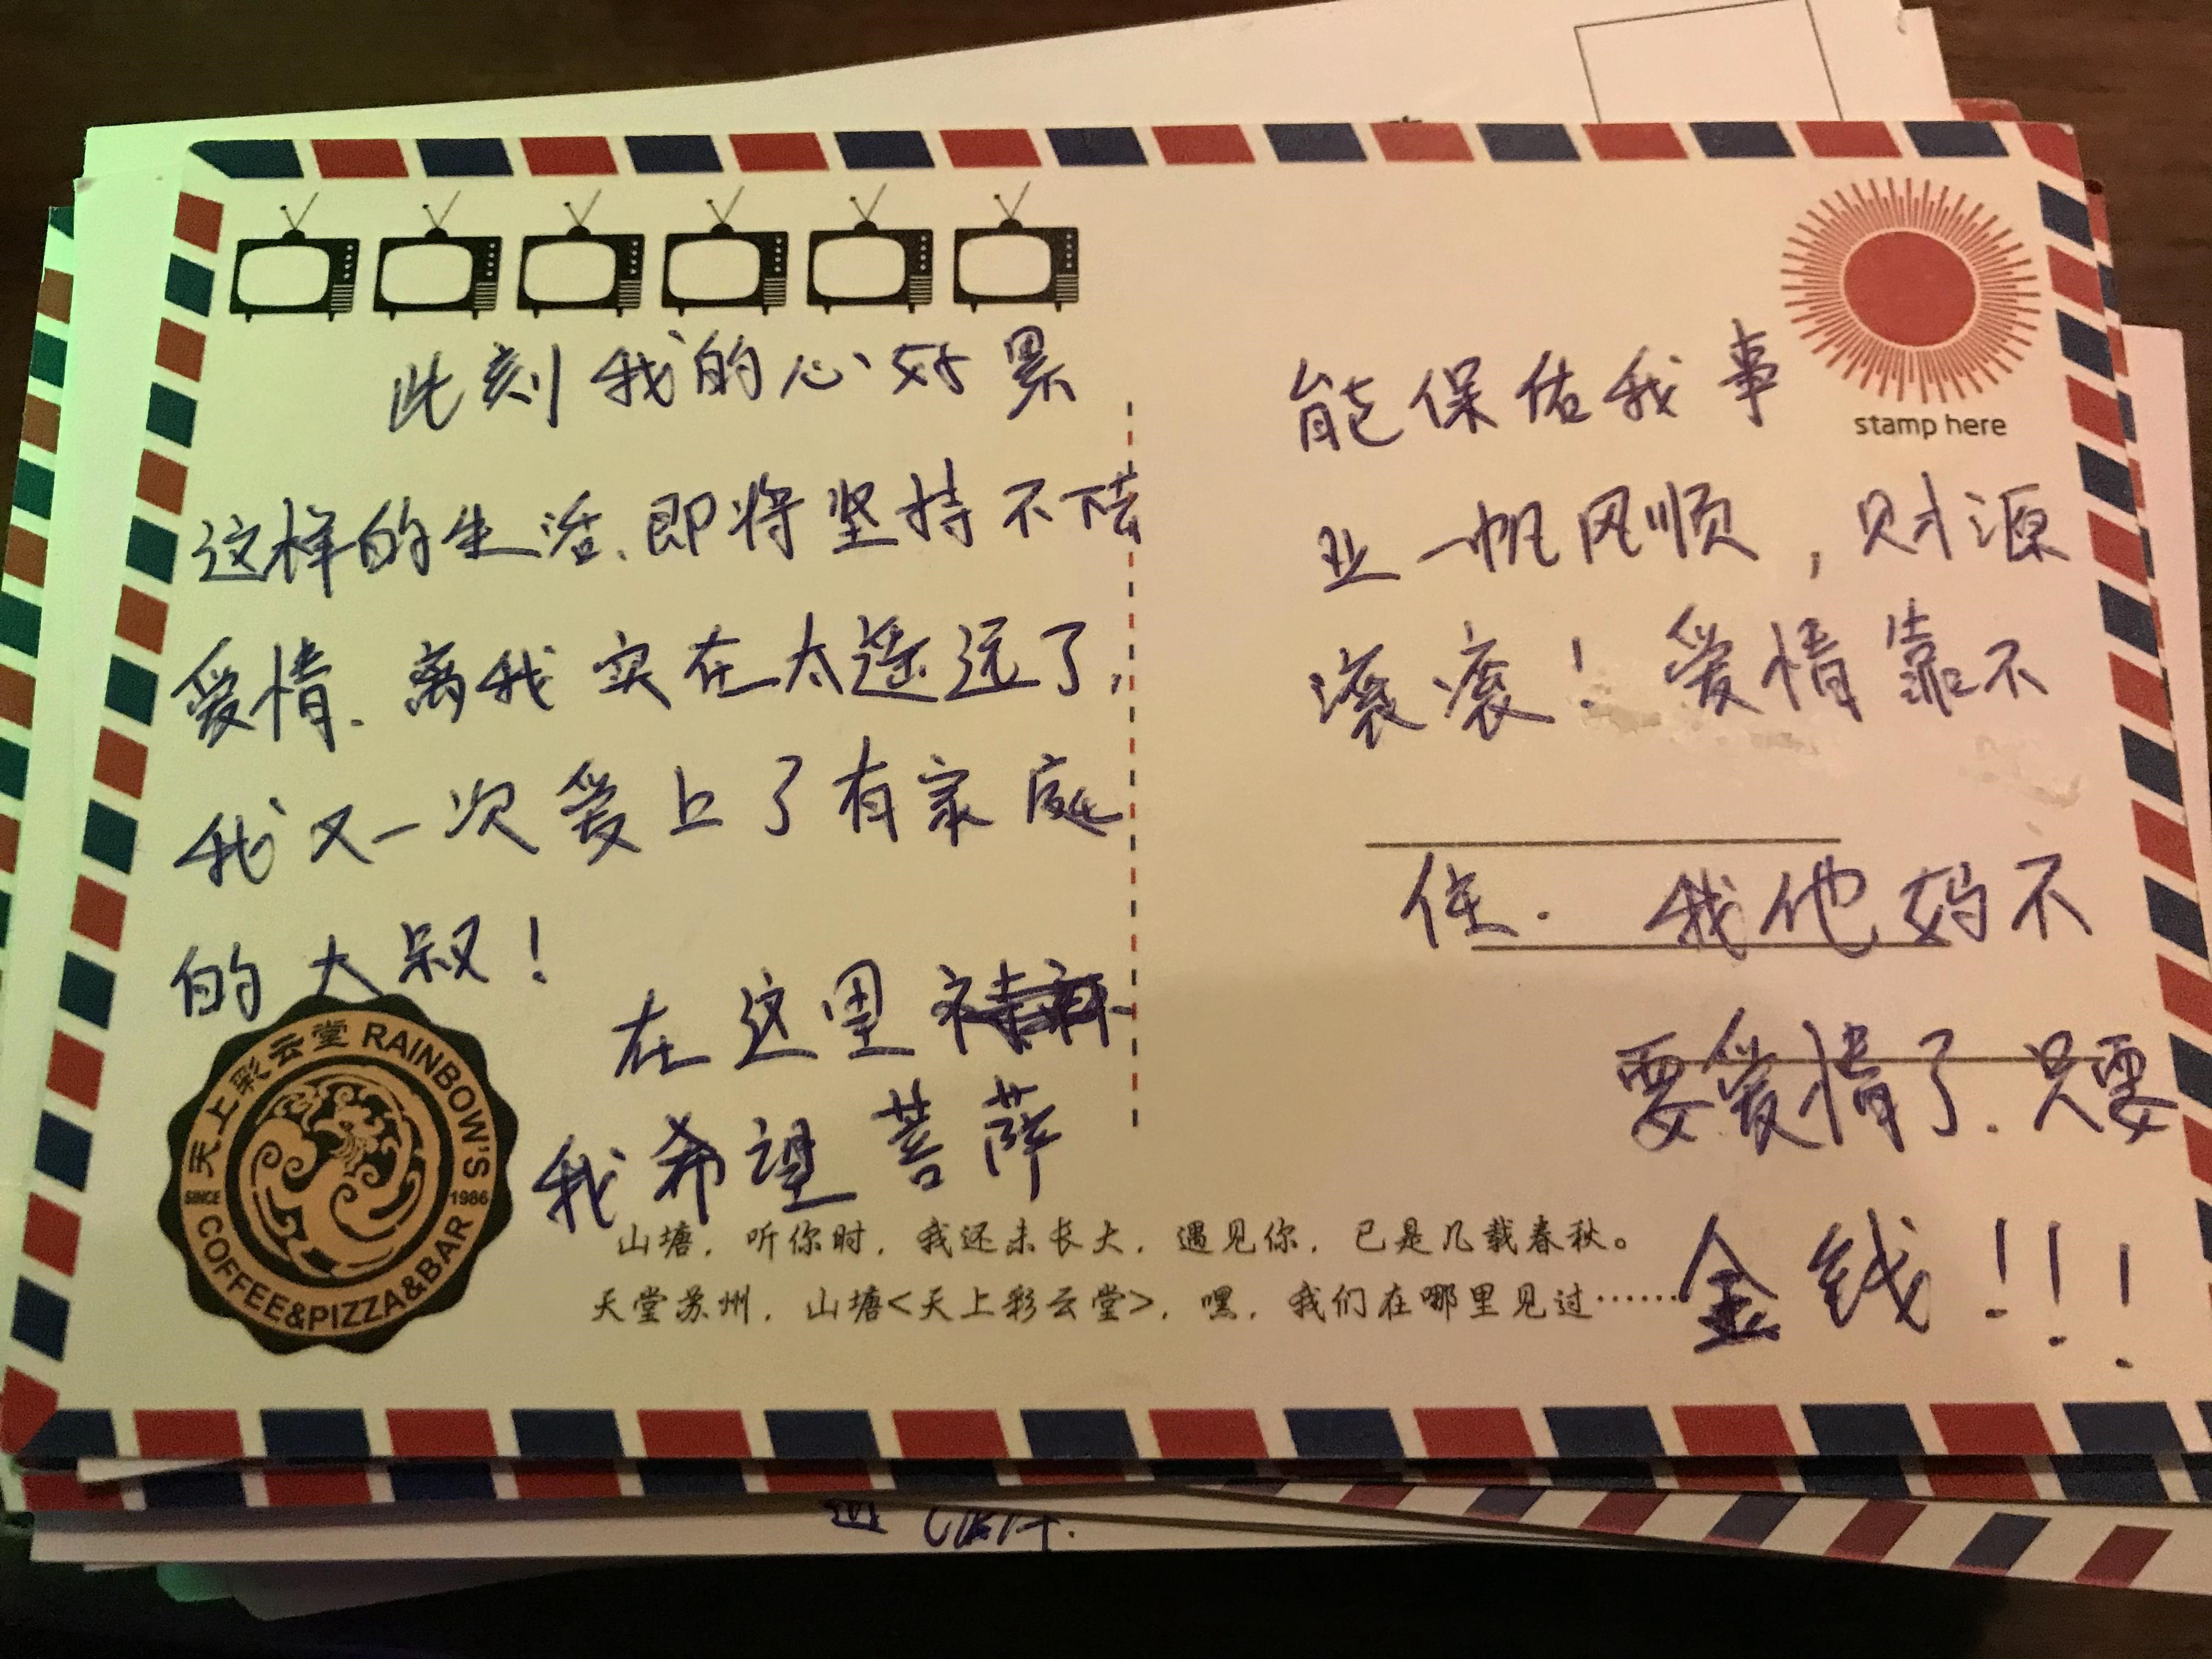 此刻我的心好累
这样的生活、即将坚持不住
爱情、离我实在太遥远了,
我又一次爱上了有家庭
的大叔!
在这里
我希望菩萨
能保佑我事
业一帆风顺,财源
滚滚!爱情靠不
住. 我他妈不
要爱情了.只要
金钱!!!
stamp here
天上彩云堂 RAINBOW'S
SINCE 1986
COFFEE&PIZZA&BAR
山塘，听你时，我还未长大，遇见你，已是几载春秋。
天堂苏州，山塘<天上彩云堂>，嘿，我们在哪里见过……